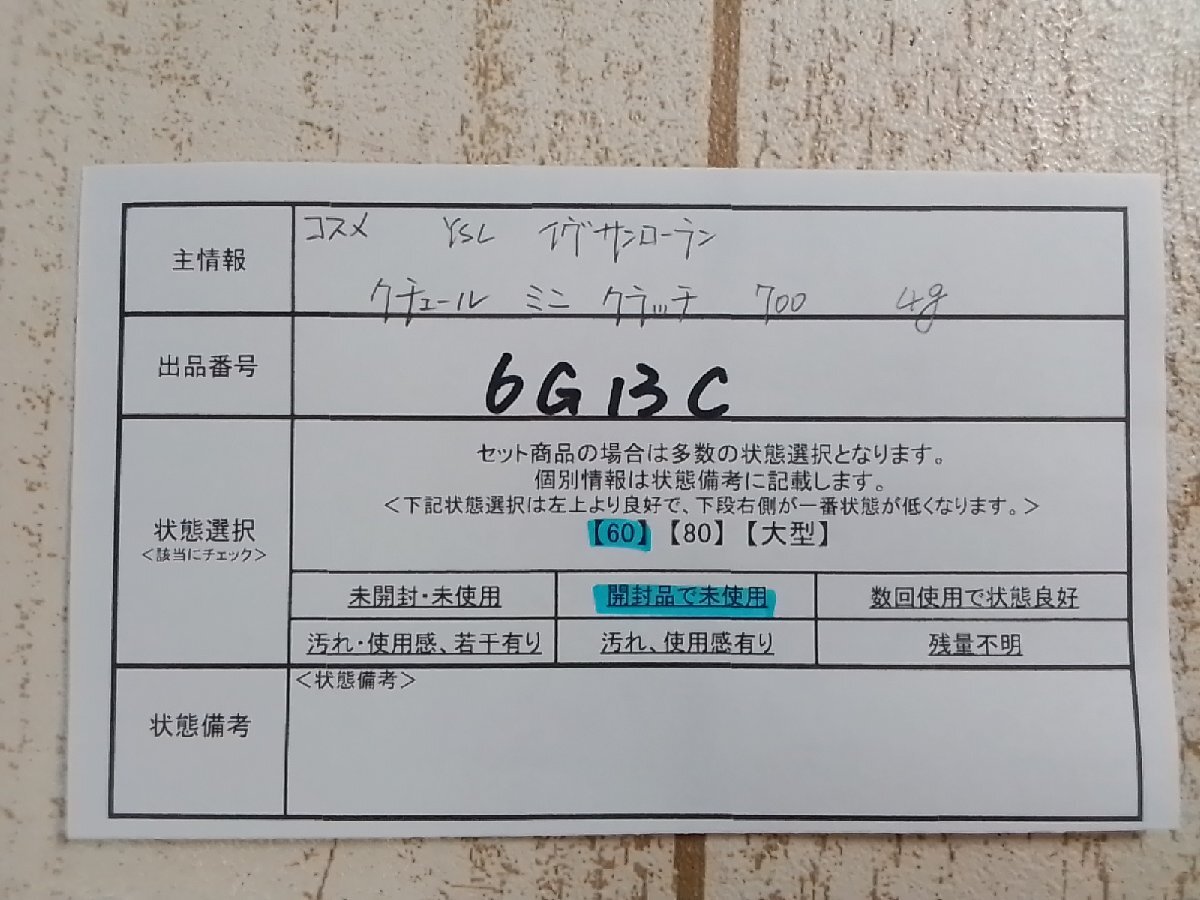 主情報
コスメ YSL イヴサンローラン
クチュール ミニ クラッチ 700 4g
出品番号
6G13C
状態選択
<該当にチェック>
セット商品の場合は多数の状態選択となります。
個別情報は状態備考に記載します。
<下記状態選択は左上より良好で、下段右側が一番状態が低くなります。>
【60】【80】【大型】
未開封・未使用 開封品で未使用 数回使用で状態良好
汚れ・使用感、若干有り 汚れ、使用感有り 残量不明
状態備考
<状態備考>